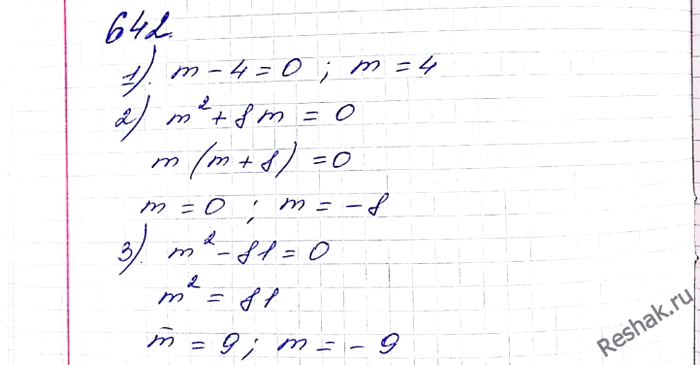 642.
1). m - 4 = 0 ; m = 4
2) m² + 8m = 0
m (m + 8) = 0
m = 0 ; m = -8
3). m² - 81 = 0
m² = 81
m = 9 ; m = -9
Reshak.ru